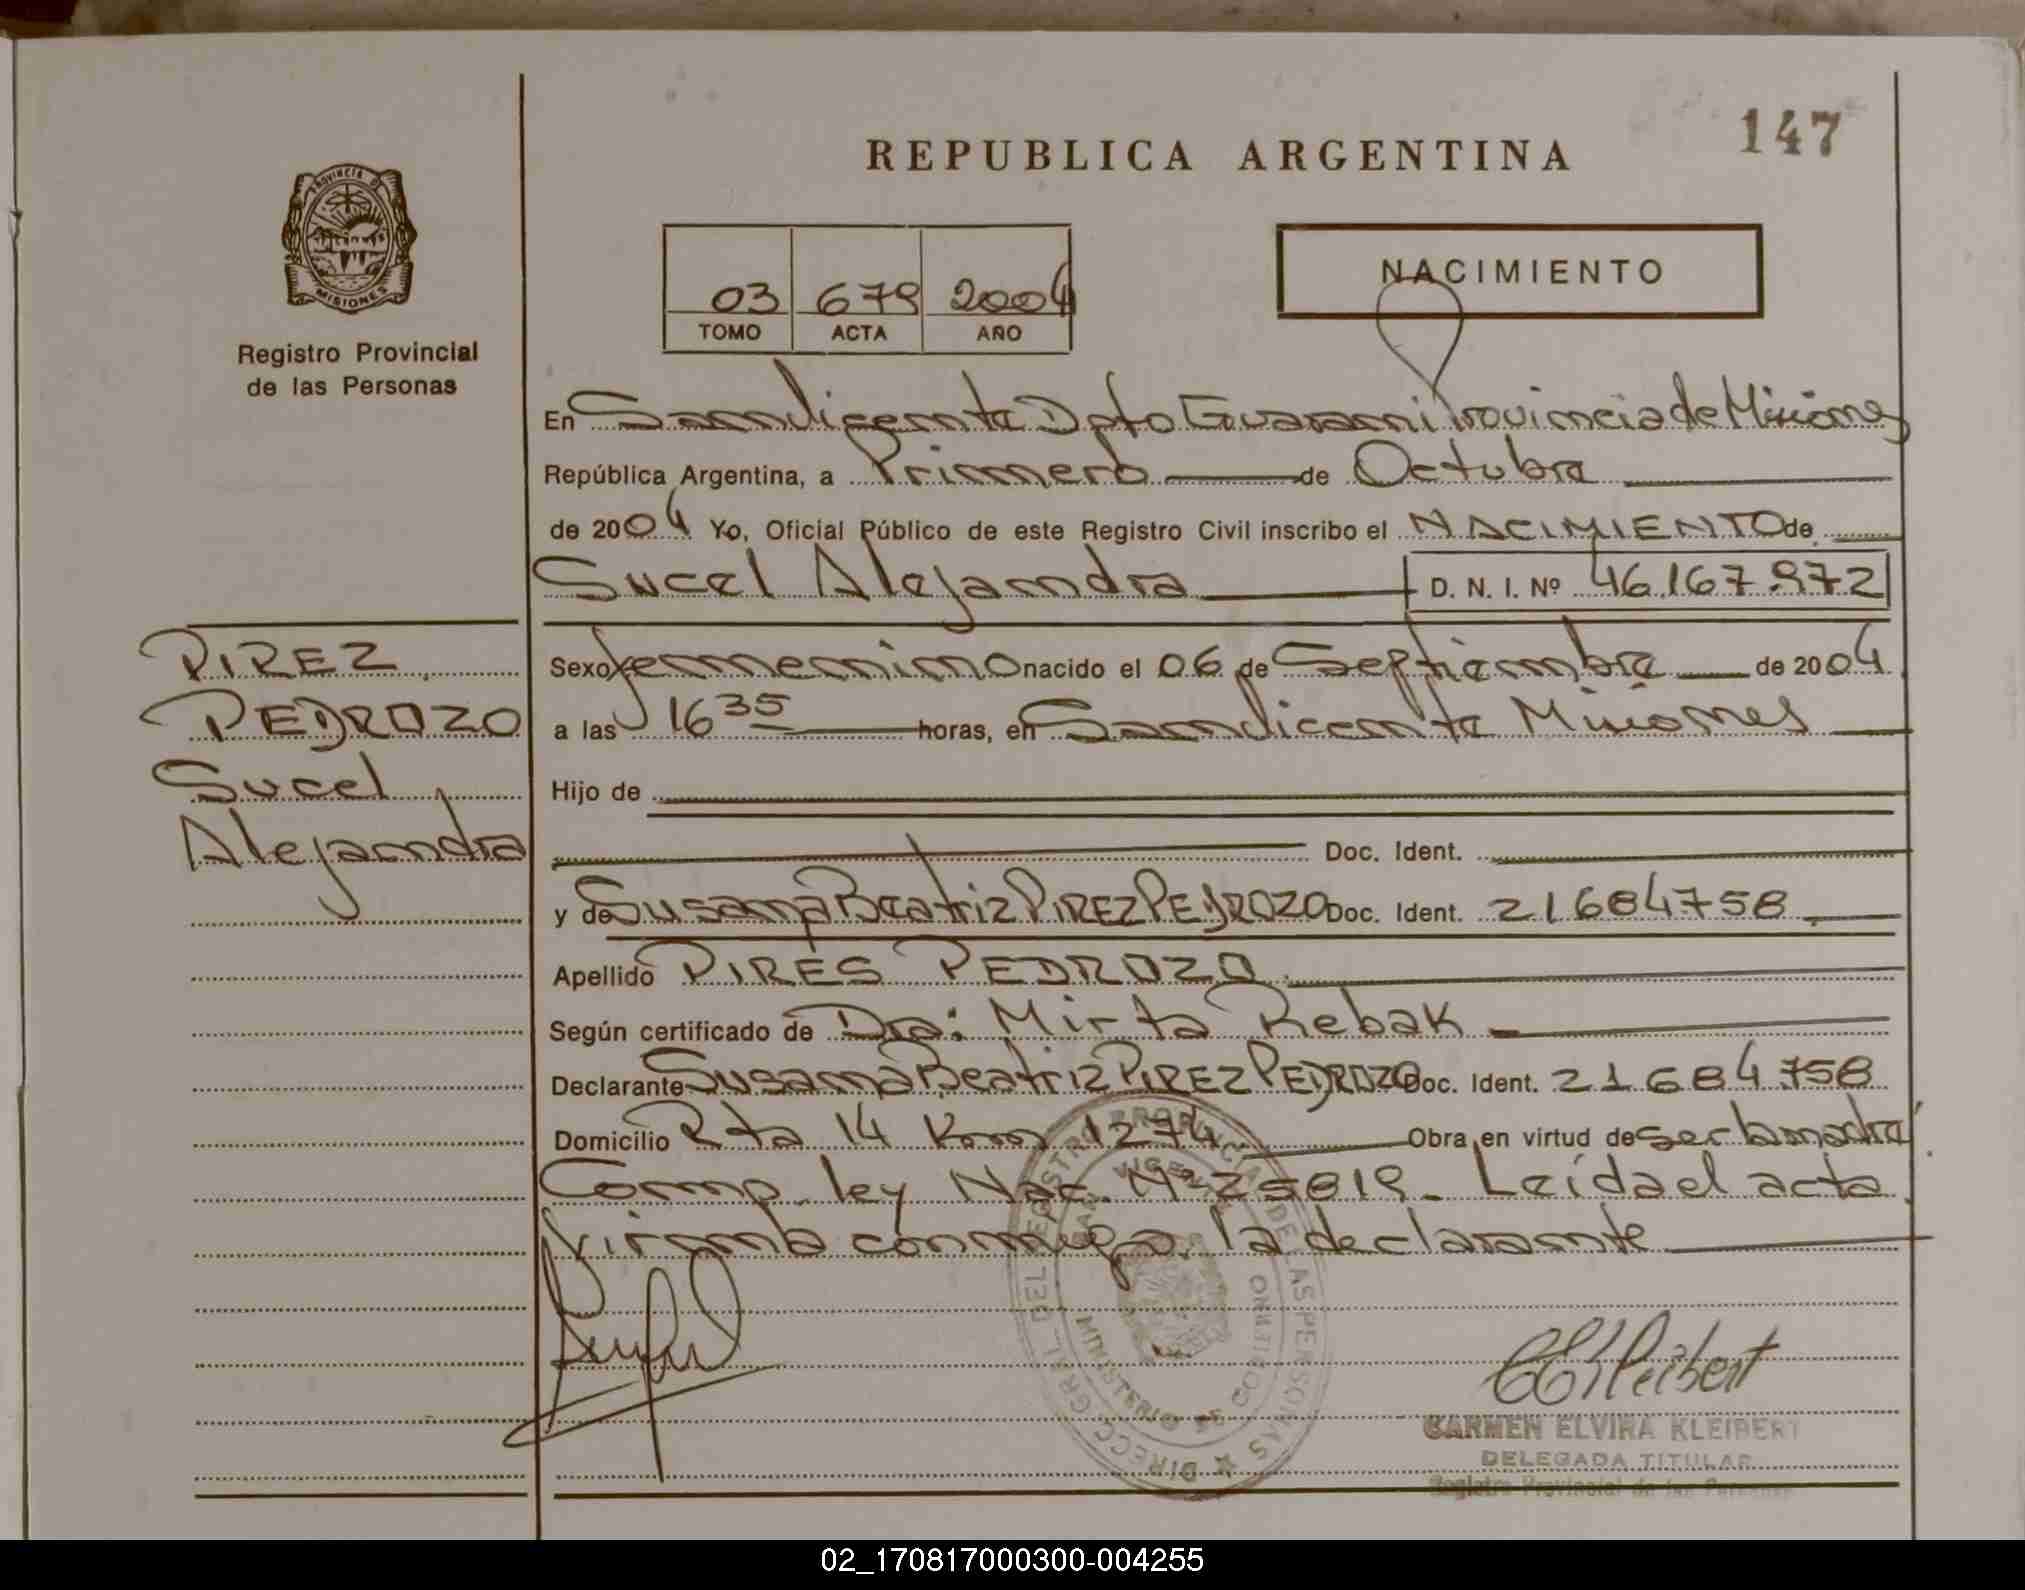 147
REPUBLICA ARGENTINA
PROVINCIA DE
MISIONES
Registro Provincial
de las Personas
03 679 2004
TOMO ACTA AÑO
NACIMIENTO
En Sanvicente Dpto Guarani Provincia de Misiones
República Argentina, a Primero de Octubre
de 2004 Yo, Oficial Público de este Registro Civil inscribo el NACIMIENTO de
Sucel Alejandra D. N. I. Nº 46.167.972
PIREZ
PEDROZO
Sucel
Alejandra
Sexo femenino nacido el 06 de Septiembre de 2004
a las 16 35 horas, en Sanvicente Misiones
Hijo de
Doc. Ident.
y de Susana Beatriz PIREZ PEDROZO Doc. Ident. 21684758
Apellido PIRES PEDROZO
Según certificado de Dra: Mirta Rebak
Declarante Susana Beatriz PIREZ PEDROZO Doc. Ident. 21684758
Domicilio Rta 14 Km 1274 Obra en virtud de ser la madre
Comp. ley Nac. Nº 25819. Leída el acta
firma conmigo la declarante
DIRECC. GRAL. DEL REGISTRO PROVINCIAL DE LAS PERSONAS
SAN VICENTE
MINISTERIO DE GOBIERNO
CKleibert
CARMEN ELVIRA KLEIBERT
DELEGADA TITULAR
Registro Provincial de las Personas
02_170817000300-004255